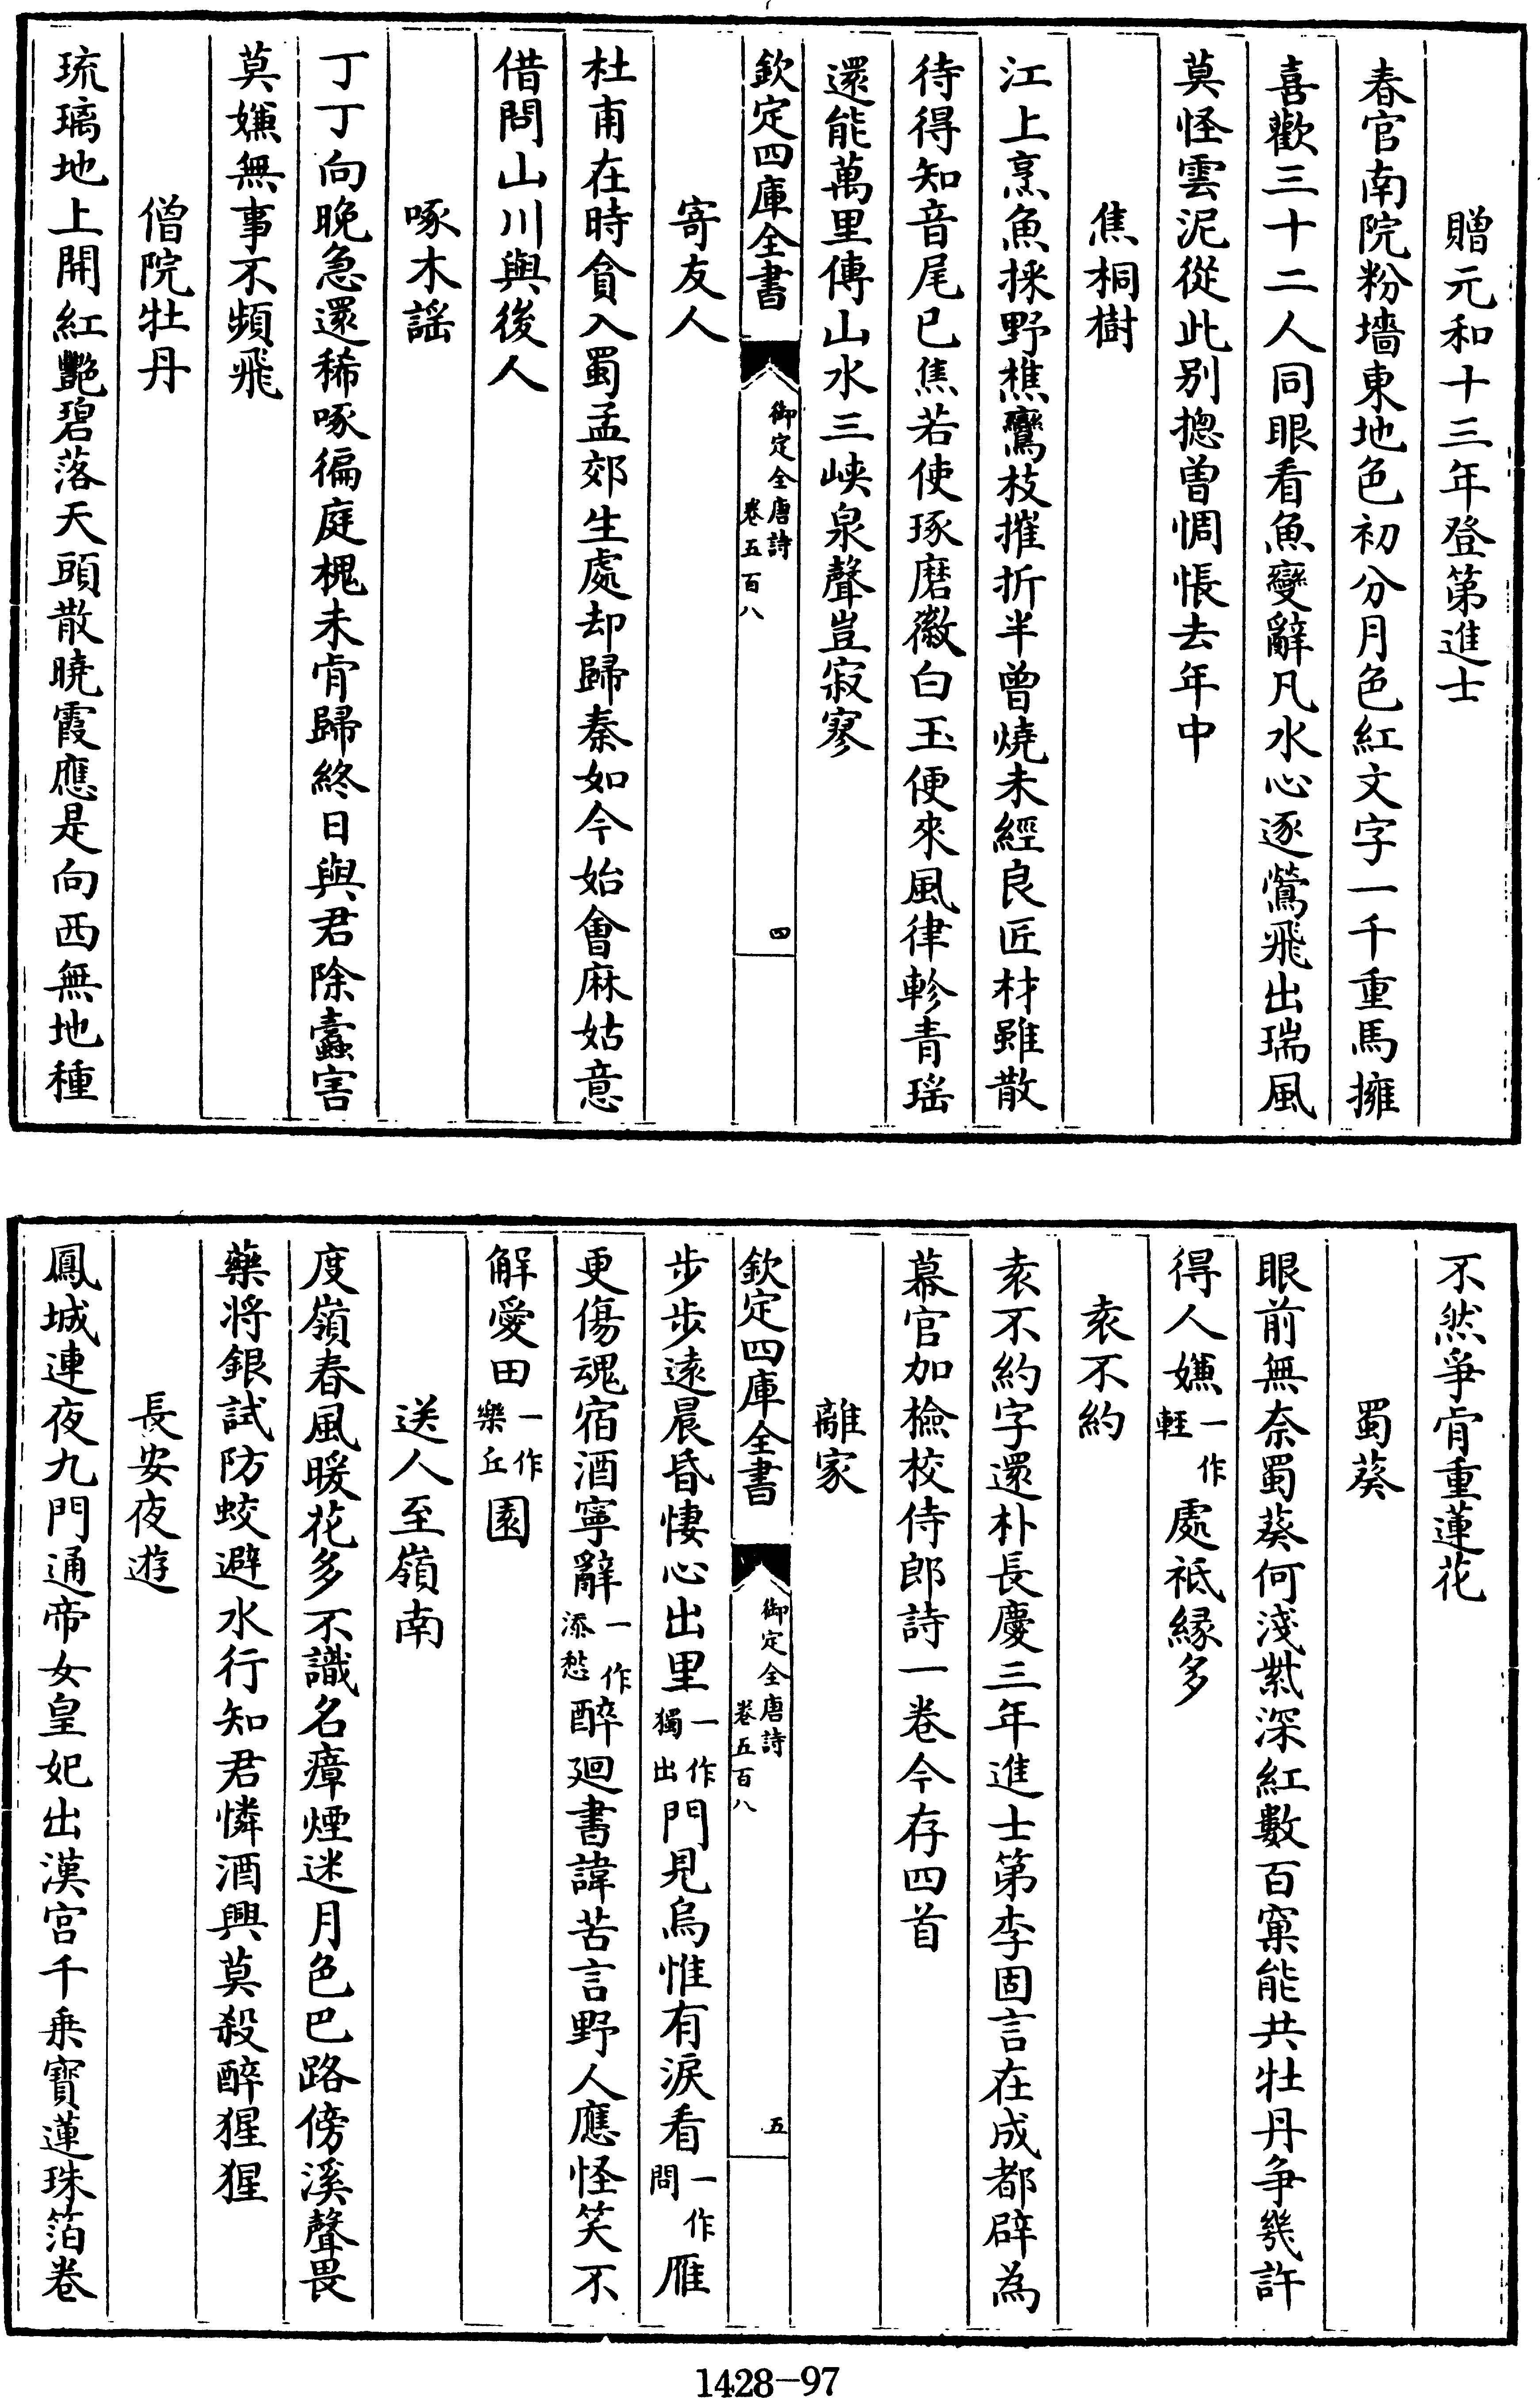 贈元和十三年登第進士
春官南院粉墻東地色初分月色紅文字一千重馬擁
喜歡三十二人同眼看魚變辭凡水心逐鶯飛出瑞風
莫怪雲泥從此别揔曾惆悵去年中
焦桐樹
江上烹魚採野樵鸞枝摧折半曾燒未經良匠材雖散
待得知音尾已焦若使琢磨徽白玉便來風律軫青瑶
還能萬里傳山水三峽泉聲豈寂寥
欽定四庫全書
御定全唐詩
卷五百八
四
寄友人
杜甫在時貪入蜀孟郊生處却歸秦如今始會麻姑意
借問山川與後人
啄木謡
丁丁向晚急還稀啄徧庭槐未肯歸終日與君除蠹害
莫嫌無事不頻飛
僧院牡丹
琉璃地上開紅艷碧落天頭散曉霞應是向西無地種
不然爭肯重蓮花
蜀葵
眼前無奈蜀葵何淺紫深紅數百窠能共牡丹争幾許
得人嫌一作輕處祗縁多
袁不約
袁不約字還朴長慶三年進士第李固言在成都辟為
幕官加檢校侍郎詩一卷今存四首
離家
欽定四庫全書
御定全唐詩
卷五百八
五
步步遠晨昏悽心出里一作獨出門見烏惟有淚看一作問雁
更傷魂宿酒寧辭一作添愁醉廻書諱苦言野人應怪笑不
解愛田一作樂丘園
送人至嶺南
度嶺春風暖花多不識名瘴煙迷月色巴路傍溪聲畏
藥将銀試防蛟避水行知君憐酒興莫殺醉猩猩
長安夜遊
鳳城連夜九門通帝女皇妃出漢宫千乗寳蓮珠箔卷
1428-97